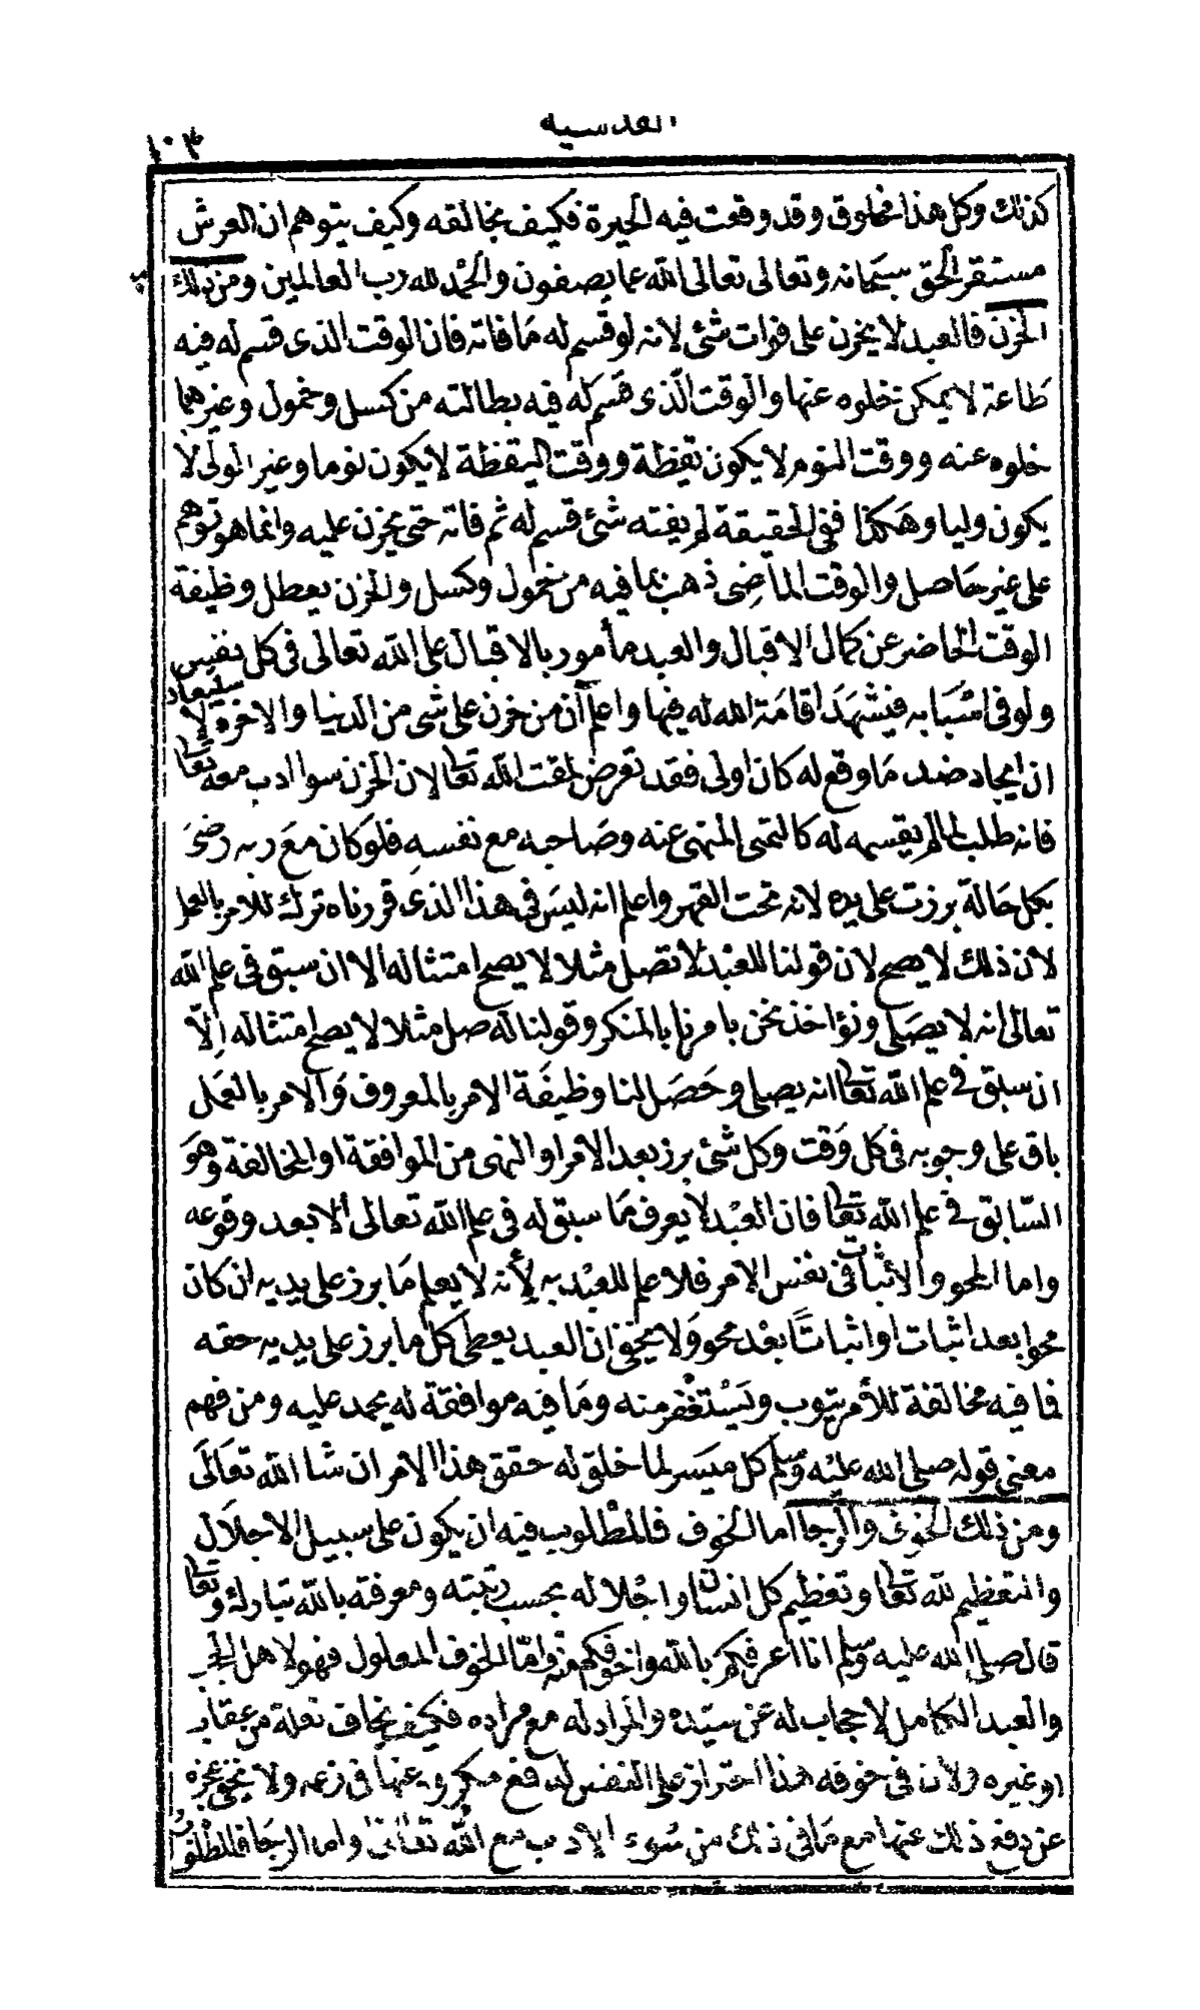 القدسيه
١٠٣
كذلك وكل هذا مخلوق وقد وقعت فيه الحيرة فكيف بخالقه وكيف يتوهم ان العرش
مستقر الحق سبحانه وتعالى تعالى الله عما يصفون والحمد لله رب العالمين ومن ذلك
الحزن فالعبد لا يحزن على فوات شئ لانه لو قسم له ما فاته فان الوقت الذى قسم له فيه
طاعة لا يمكن خلوه عنها والوقت الذى قسم له فيه بطالته من كسل وخمول وغيرهما
خلوه عنه ووقت النوم لا يكون يقظة ووقت اليقظة لا يكون نوما وغير المولى لا
يكون وليا وهكذا ففى الحقيقة لم يفته شئ قسم له ثم فاته حتى يحزن عليه وانما هو توهم
على غير حاصل والوقت الماضى ذهب بما فيه من خمول وكسل والحزن يعطل وظيفة
الوقت الحاضر عن كمال الاقبال والعبد مأمور بالاقبال على الله تعالى فى كل نفس
ولو فى اسبابه فيشهد اقامة الله له فيها واعلم أن من حزن على شى من الدنيا والاخرة لا سيما
ان ايجاد ضد ما وقع له كان اولى فقد تعرض لمقت الله تعالى لان الحزن سوا ادب معه تعالى
فانه طلب لما لم يقسمه له كالتمنى المنهى عنه وصاحبه مع نفسه فلو كان مع ربه رضى
بكل حالة برزت على يده لانه تحت القهر واعلم انه ليس فى هذا الذى قررناه ترك للامر بالعمل
لان ذلك لا يصح لان قولنا للعبد لا تصل مثلا لا يصح امتثاله الا ان سبق فى علم الله
تعالى انه لا يصلى ونؤاخذ نحن بامرنا بالمنكر وقولنا له صل مثلا لا يصح امتثاله إلّا
ان سبق فى علم الله تعالى انه يصلى وحصل لنا وظيفة الامر بالمعروف والامر بالعمل
باق على وجوبه فى كل وقت وكل شئ برز بعد الامر او النهى من الموافقة او المخالفة وهو
السابق فى علم الله تعالى فان العبد لا يعرف ما سبق له فى علم الله تعالى ألا بعد وقوعه
واما المحو والاثبات فى نفس الامر فلا علم للعبد به لأنه لا يعلم ما برز على يديه ان كان
محوا بعد اثبات او اثباتًا بعد محو ولا يخفى ان العبد يعطى كل ما برز على يديه حقه
فما فيه مخالفة للأمر يتوب ويستغفر منه وما فيه موافقة له يحمد عليه ومن فهم
معنى قوله صلى الله عليه وسلم كل ميسر لما خلق له حقق هذا الامر ان شا الله تعالى
ومن ذلك الخوف والرجا أما الخوف فالمطلوب فيه ان يكون على سبيل الاجلال
والتعظيم لله تعالى وتعظيم كل انسان واجلاله بحسب رتبته ومعرفته بالله تبارك وتعالى
قال صلى الله عليه وسلم انا اعرفكم بالله واخوفكم منه وامّا الخوف المعلول فهو لاهل الحجب
والعبد الكامل لا حجاب له عن سيده والمراد له مع مراده فكيف يخاف نقلة من عقاب
او غيره ولان فى خوفه هذا احتراز على النفس لدفع مكروه عنها فى زعمه ولا يخفى عجزه
عن دفع ذلك عنها مع ما فى ذلك من سُوء الادب مع الله تعالى واما الرجا فالمطلوب